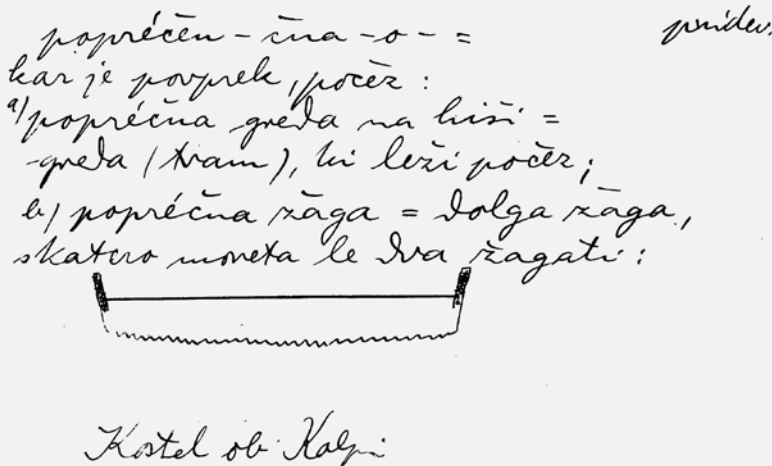 popréčen - čna - o - =
pridev.
kar je povprek, počez :
a/ popréčna greda na hiši =
-greda (tram), ki leži počez ;
b/ popréčna žaga = dolga žaga,
s katero moreta le dva žagati :
Kostel ob Kolpi